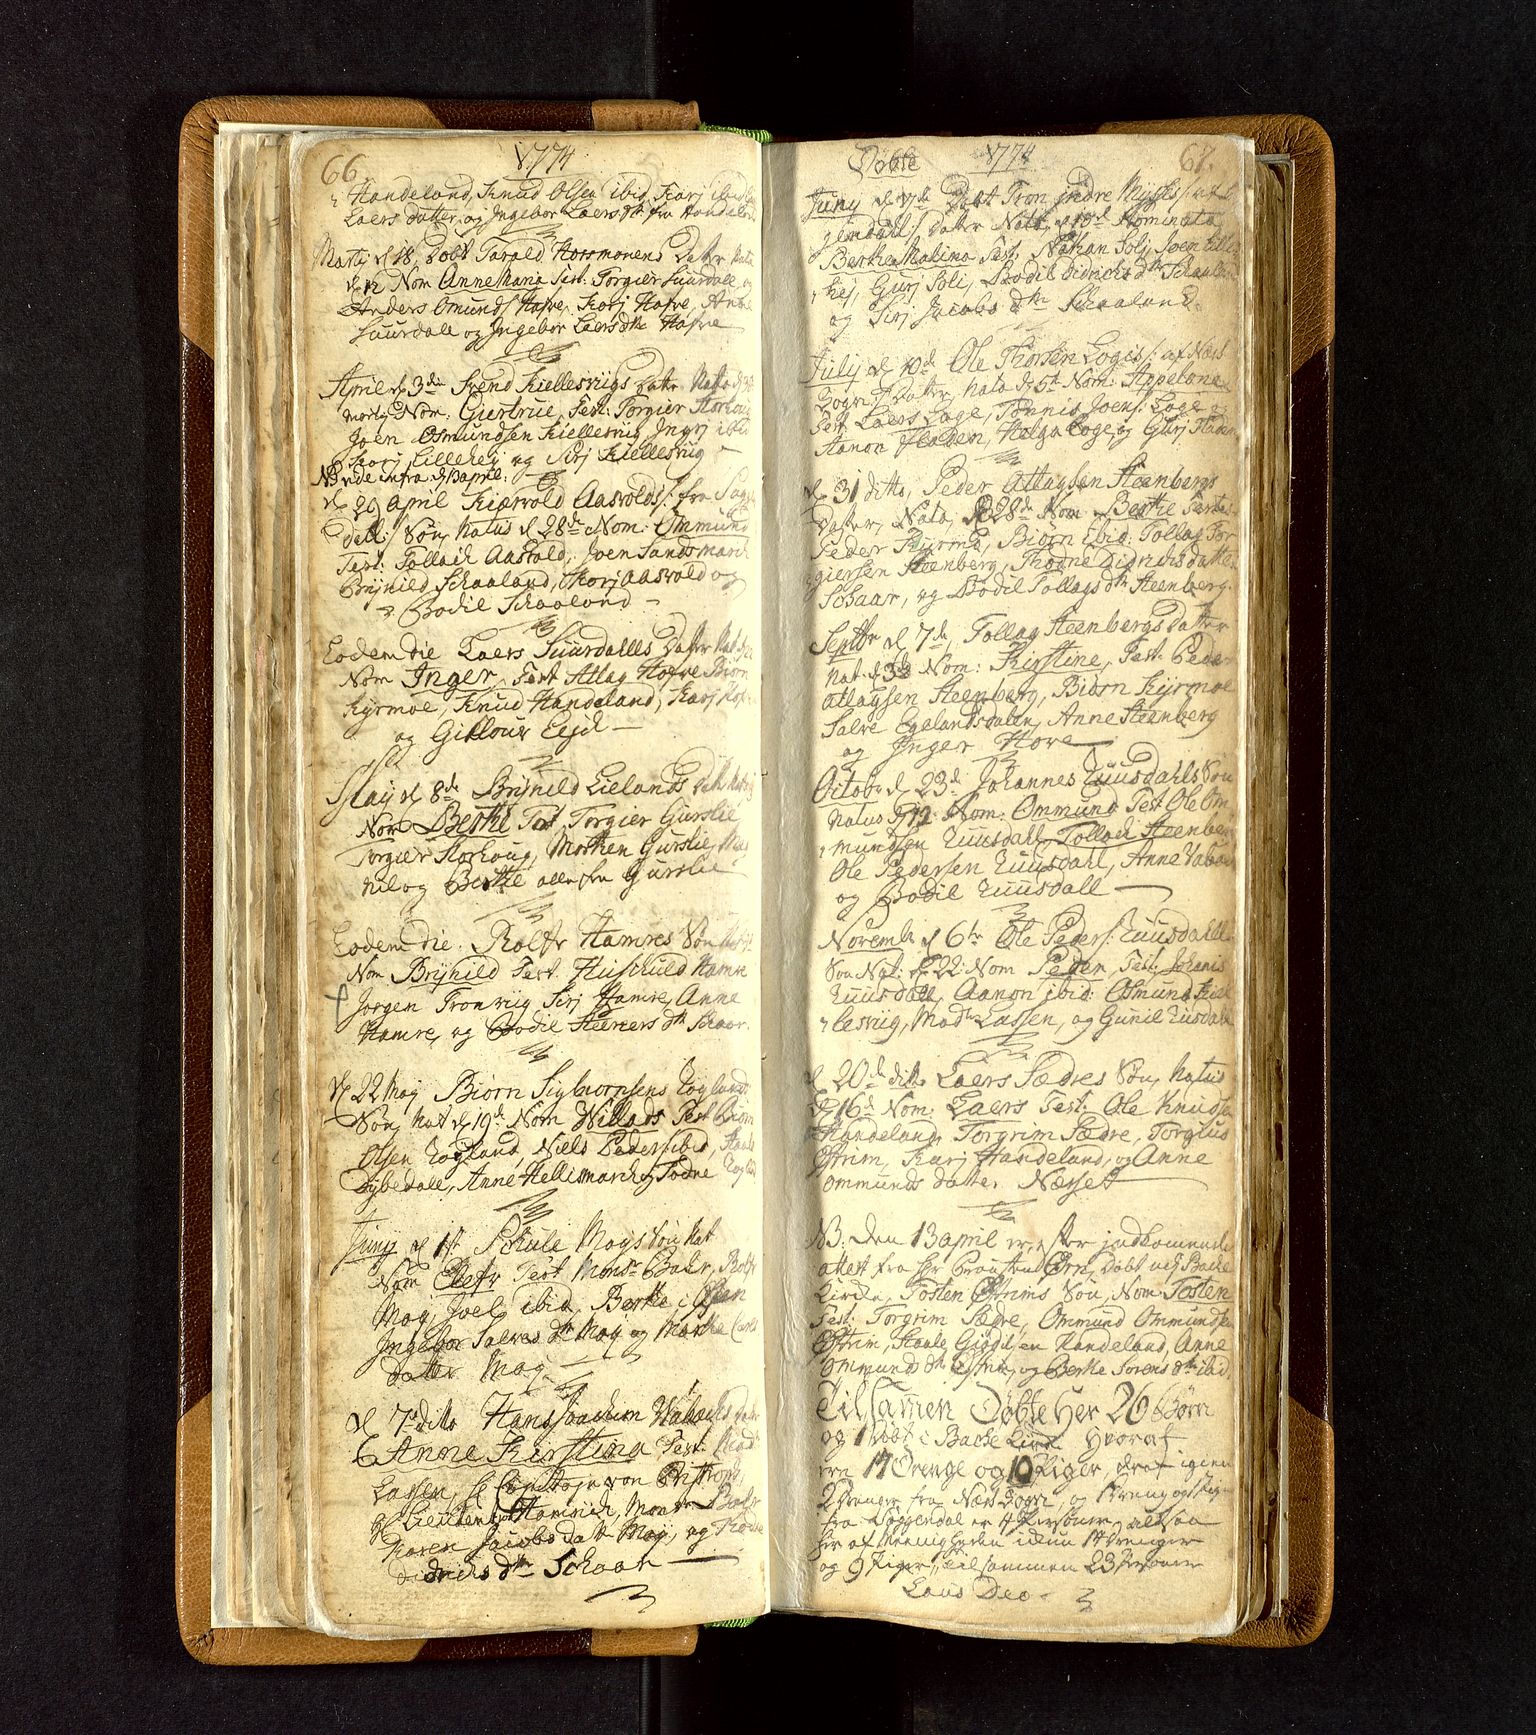 66. 1774
Handeland, Knud Olsen ibid, Karj ibid
Laers datter, og Ingebor Laers dtr fra Handeland
Martij d 18, Dobt Tarald Horsmonens Datter Nata
d 12 Nom Anne Maria Test: Torgier Suurdall, og
Anders Omunds: Hafre, Karj Hafre, Anne
Suurdall og Ingebor Laersdtr Hafre
April d 3die Svend Kiellesviigs Datter Nata d 3
Nom: Giertrue, Test: Torgier Storhoug
Joen Osmundsen Kiellesviig Ingrj ibid
Karj Lillehej og Sirj Kiellesviig
NB vide infra d 13 april.
d 29 April Kiørvold Aasvolds /: fra Sogn
dall :/ Søn, Natus d 28de Nom: Ommund
Test: Tollack Aasvold, Joen Sandsmarck
Brynild Schaaland, Karj Aasvold og
Bodil Schaaland
Eodem Die Laers Suurdalls Datter Nat
Nom Inger, Test Atlag Hofre Biørn
Kyrmoe, Knud Handeland, Karj
og Gillour Eejd
Maij d 8de Brynild Lielands Datter Nat
Nom Berthe Test, Torgier Gurslie,
Torgier Storhoug, Morten Gurslie,
nil og Berthe alle fra Gurslie
Eodem Die. Rolfr Hamres Søn
Nom Brynild Test. Huschuld Hamre
Jørgen Tronviig Sirj Hamre, Anne
Hamre, og Bodil Steeners dtr Skaar.
d 22 Maij Biørn Sigbiørnsens Egeland
Søn, Nat d 19d Nom Willads Test Biørn
Olsen Egeland, Niels Peders: ibid,
Dybedall, Anne Hellesmarck og Todne
Junij d 1st. Skule Moys Søn Nat
Nom Elefr Test Monsr Bahr, Rolfr
Moy, Joel ibid, Berthe i Ajan
Ingebor Salves dtr Moy og Marthe Carls
datter Moy.
d 7de ditto Hans Joachim Datter
Anne Kirstina Test:
Lassen, Hr Capitajn von
og Lieutenant Hamrich, Monsr Bahr
Karen Jacobs datter Moy, og
Didrichs dtr Schaar
Døbte 1774 67.
Junij d 17de Dobt Tron jndre Mysses /: af
gendall :/ Datter Nata d 10d Nominata
Berthe Malina Test, Nathan Solj Joen Lille
hej, Gurj Soli, Bodil Didrichs dtr Schaaland
og Sirj Jacobs dtr Schaaland.
Julij d 10d Ole Thorsen Loges /: af Næs
Sogn :/ Datter, nata d 5te Nom: Appelone
Test Laers Loge, Tønnis Joens: Loge og
Aanon Fladen, Helga Loge, og Gurj Fladen
d 31 ditto, Peder Attlagsen Steenbergs
Datter, Nata, d 28de Nom Berthe Testes
Peder Kyrmo, Biørn ibid: Tollag Tor
giersen Steenberg, Thodne Didrichsdatter
Schaar, og Bodil Tollags dtr Steenberg.
Septbr d 7de Tollag Steenbergs Datter
nat. d 3de Nom: Kirstine, Test. Peder
Atlagsen Steenberg, Biørn Kyrmoe
Salve Egelandsdalen, Anne Steenberg
og Inger Hove
Octobr d 23d. Johannes Luusdahls Søn
natus d 12. Nom: Ommund Test Ole Om
mundsen Luusdahl, Tollach Steenberg
Ole Pedersen Luusdahl, Anne
og Bodil Luusdall
Novembr d 6te Ole Peders: Luusdahls
Søn Nat: d 22: Nom Peder, Test: Johanis
Luusdall, Aanon ibid: Osmund Kiel
lesviig, Madme Lassen, og Gunil Lusdall
d 20de ditto Laers Sædres Søn, Natus
d 16d Nom: Laers Test: Ole Knuds:
Handeland, Torgrim Sædre, Torgius
Østrim, Karj Handeland, og Anne
Ommunds datter Næsset
NB. Den 13 april er, efter jndkommende
attest fra Hr Provsten Ørn, Dobt udj Backe
Kircke, Tosten Østrims Søn, Nom Tosten
Test: Torgrim Sædre, Ommund Ommunds:
Østrim, Staale Giødelsen Handeland, Anne
Ommunds dtr Østrim, og Berthe Sørens dtr ibid.
Tilsamen Døbte Her 26 Børn
og 1 Dobt i Backe Kirck. Hvoraf
ere 17 Drenge og 10 Piger, deraf igien
2 Drenge fra Næs Sogn, og 1 Dreng og 1 Pige
fra Soggendal er 4 Persohner, altsaa
her af Menigheden idem 14 Drenger
og 9 Piger, tilsammen 23 Personer
Laus Deo